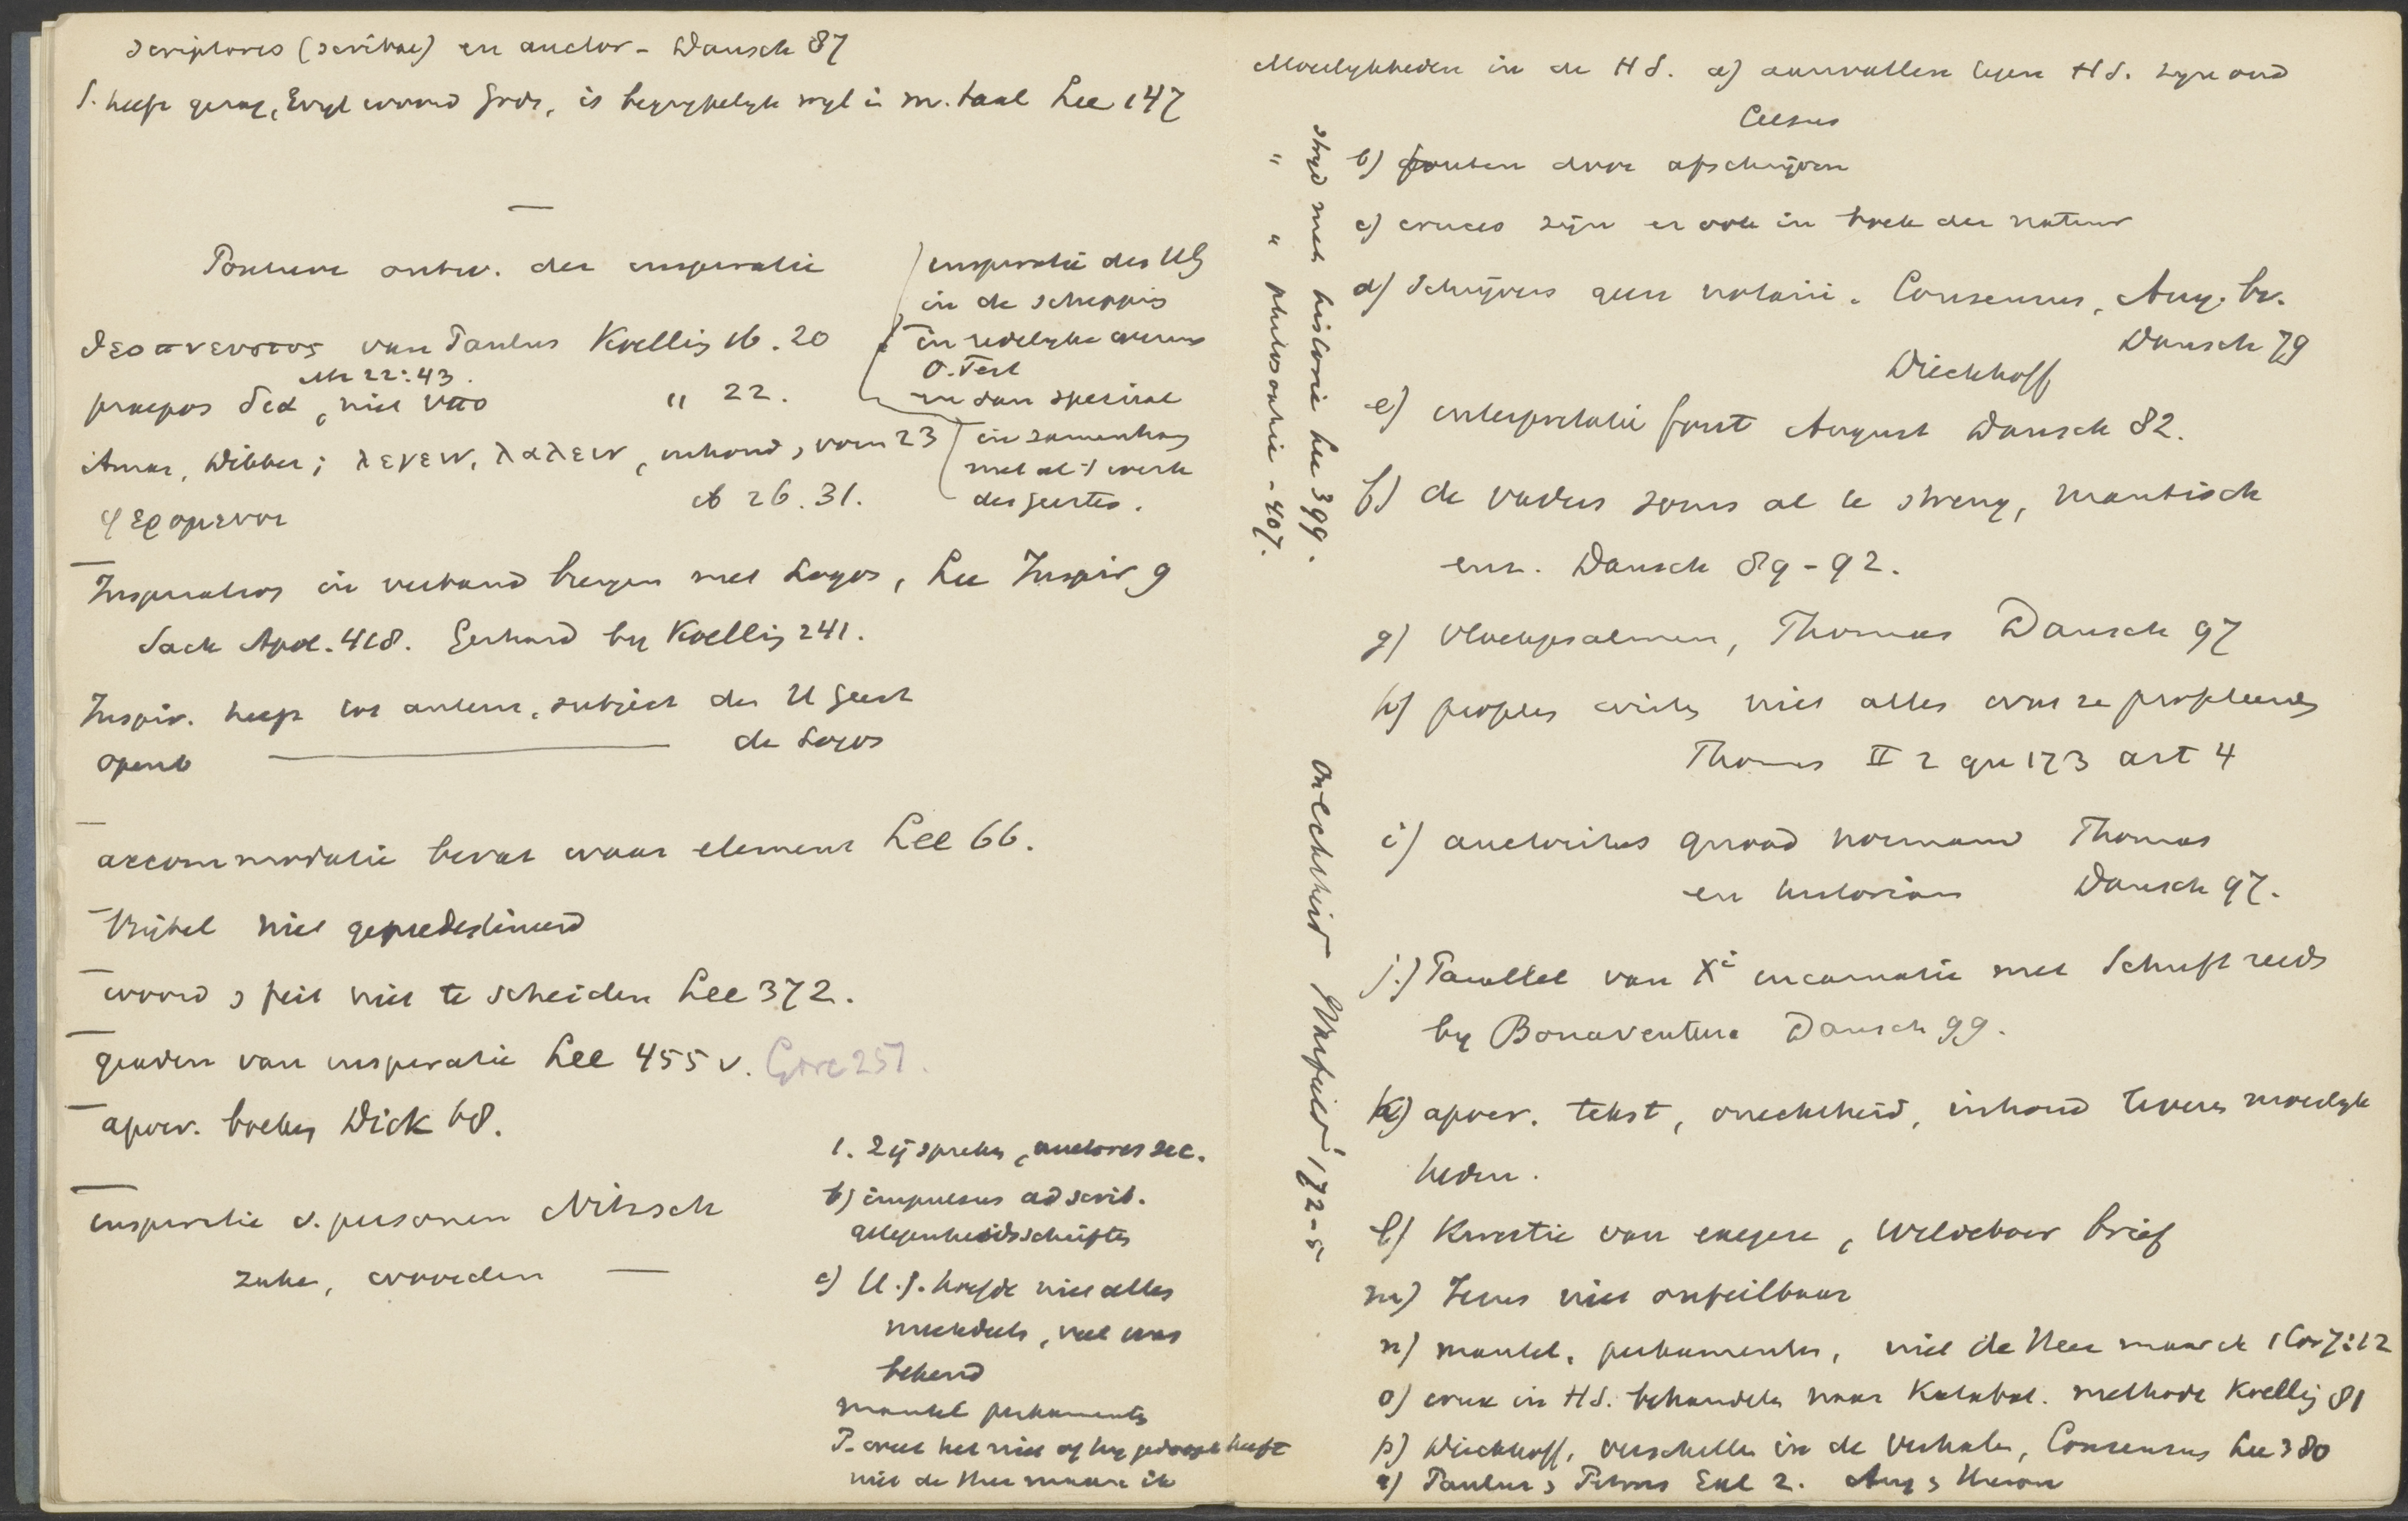 scriptores (scribae) en auctor - Dausch 87
S. heeft gezag, Evgl woord Gods, is begrypelyk wyl in m. taal Lee 147
Positieve ontw. der inspiratie
θεοπνευστος van Paulus Koelling 16. 20
Mt 22:43.
praepos δια, niet υπο " 22.
Amar, Dibber; λεγειν, λαλειν, inhoud, vorm 23
φερομενοι 26. 31.
inspiratie des HG
in de schepping
in redelyke wezens
O. Test
en dan speciaal
in samenhang
met al 't werk
des geestes.
Inspiratie in verband brengen met Logos, Lee Inspir 9
Sack Apol. 418. Gerhard by Koelling 241.
Inspir. heeft tot auteur, subject den H Geest
openb ——— de Logos
accommodatie bevat waar element Lee 66.
Bijbel niet gepredestineerd
woord & feit niet te scheiden Lee 372.
graden van inspiratie Lee 455 v. Gore 257.
apocr. boeken Dick 68.
inspiratie v. personen Nitzsch
zaken, woorden —
1. Zij spreken, auctores sec.
b) impulsus ad scrib.
gelegenheidsschriften
c) H.G. hoefde niet alles
meedeelen, veel was
bekend
mantel perkamenten
P. weet het niet of hy gedoopt heeft
niet de Heer maar ik
Moeilykheden in de HS. a) aanvallen tegen HS. zyn oud
Celsus
b) fouten door afschrijven
c) cruces zijn er ook in boek der natuur
d) Schrijvers geen notarii. Consensus, Aug. bv.
Dausch 79
Dieckhoff
e) interpretatie fout August Dausch 82.
f) de vaders soms al te streng, mantisch
enz. Dausch 89-92.
g) vloekpsalmen, Thomas Dausch 97
h) profeten wisten niet alles wat ze profeteerden
Thomas II 2 qu 173 art 4
i) auctoritas quoad normam Thomas
en historiam Dausch 97.
j.) Parallel van Xi incarnatie met Schrift reeds
by Bonaventura Dausch 99.
k) apocr. tekst, onechtheid, inhoud leveren moeilyk
heden.
l) Kwestie van exegese, Wildeboer brief
m) Jezus niet onfeilbaar
n) mantel, perkamenten, niet de Heer maar ik 1 Cor 7:12
o) crux in HS. behandelen naar Katabat. methode Koelling 81
p) Dieckhoff, verschillen in de verhalen, Consensus Lee 380
q) Paulus & Petrus Gal 2. Aug & Hieron
stryd met historie Lee 399.
" " philosophie - 407.
onechtheid Warfield 172-5